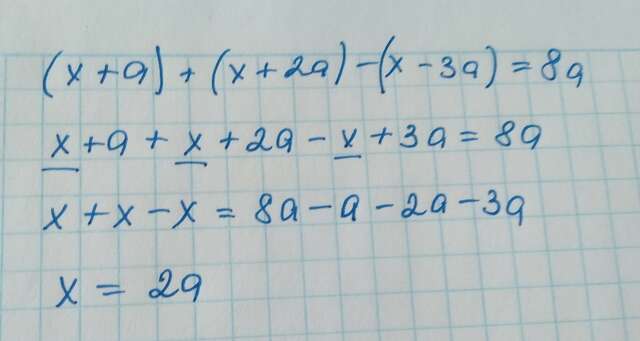 (x + a) + (x + 2a) - (x - 3a) = 8a
x + a + x + 2a - x + 3a = 8a
x + x - x = 8a - a - 2a - 3a
x = 2a